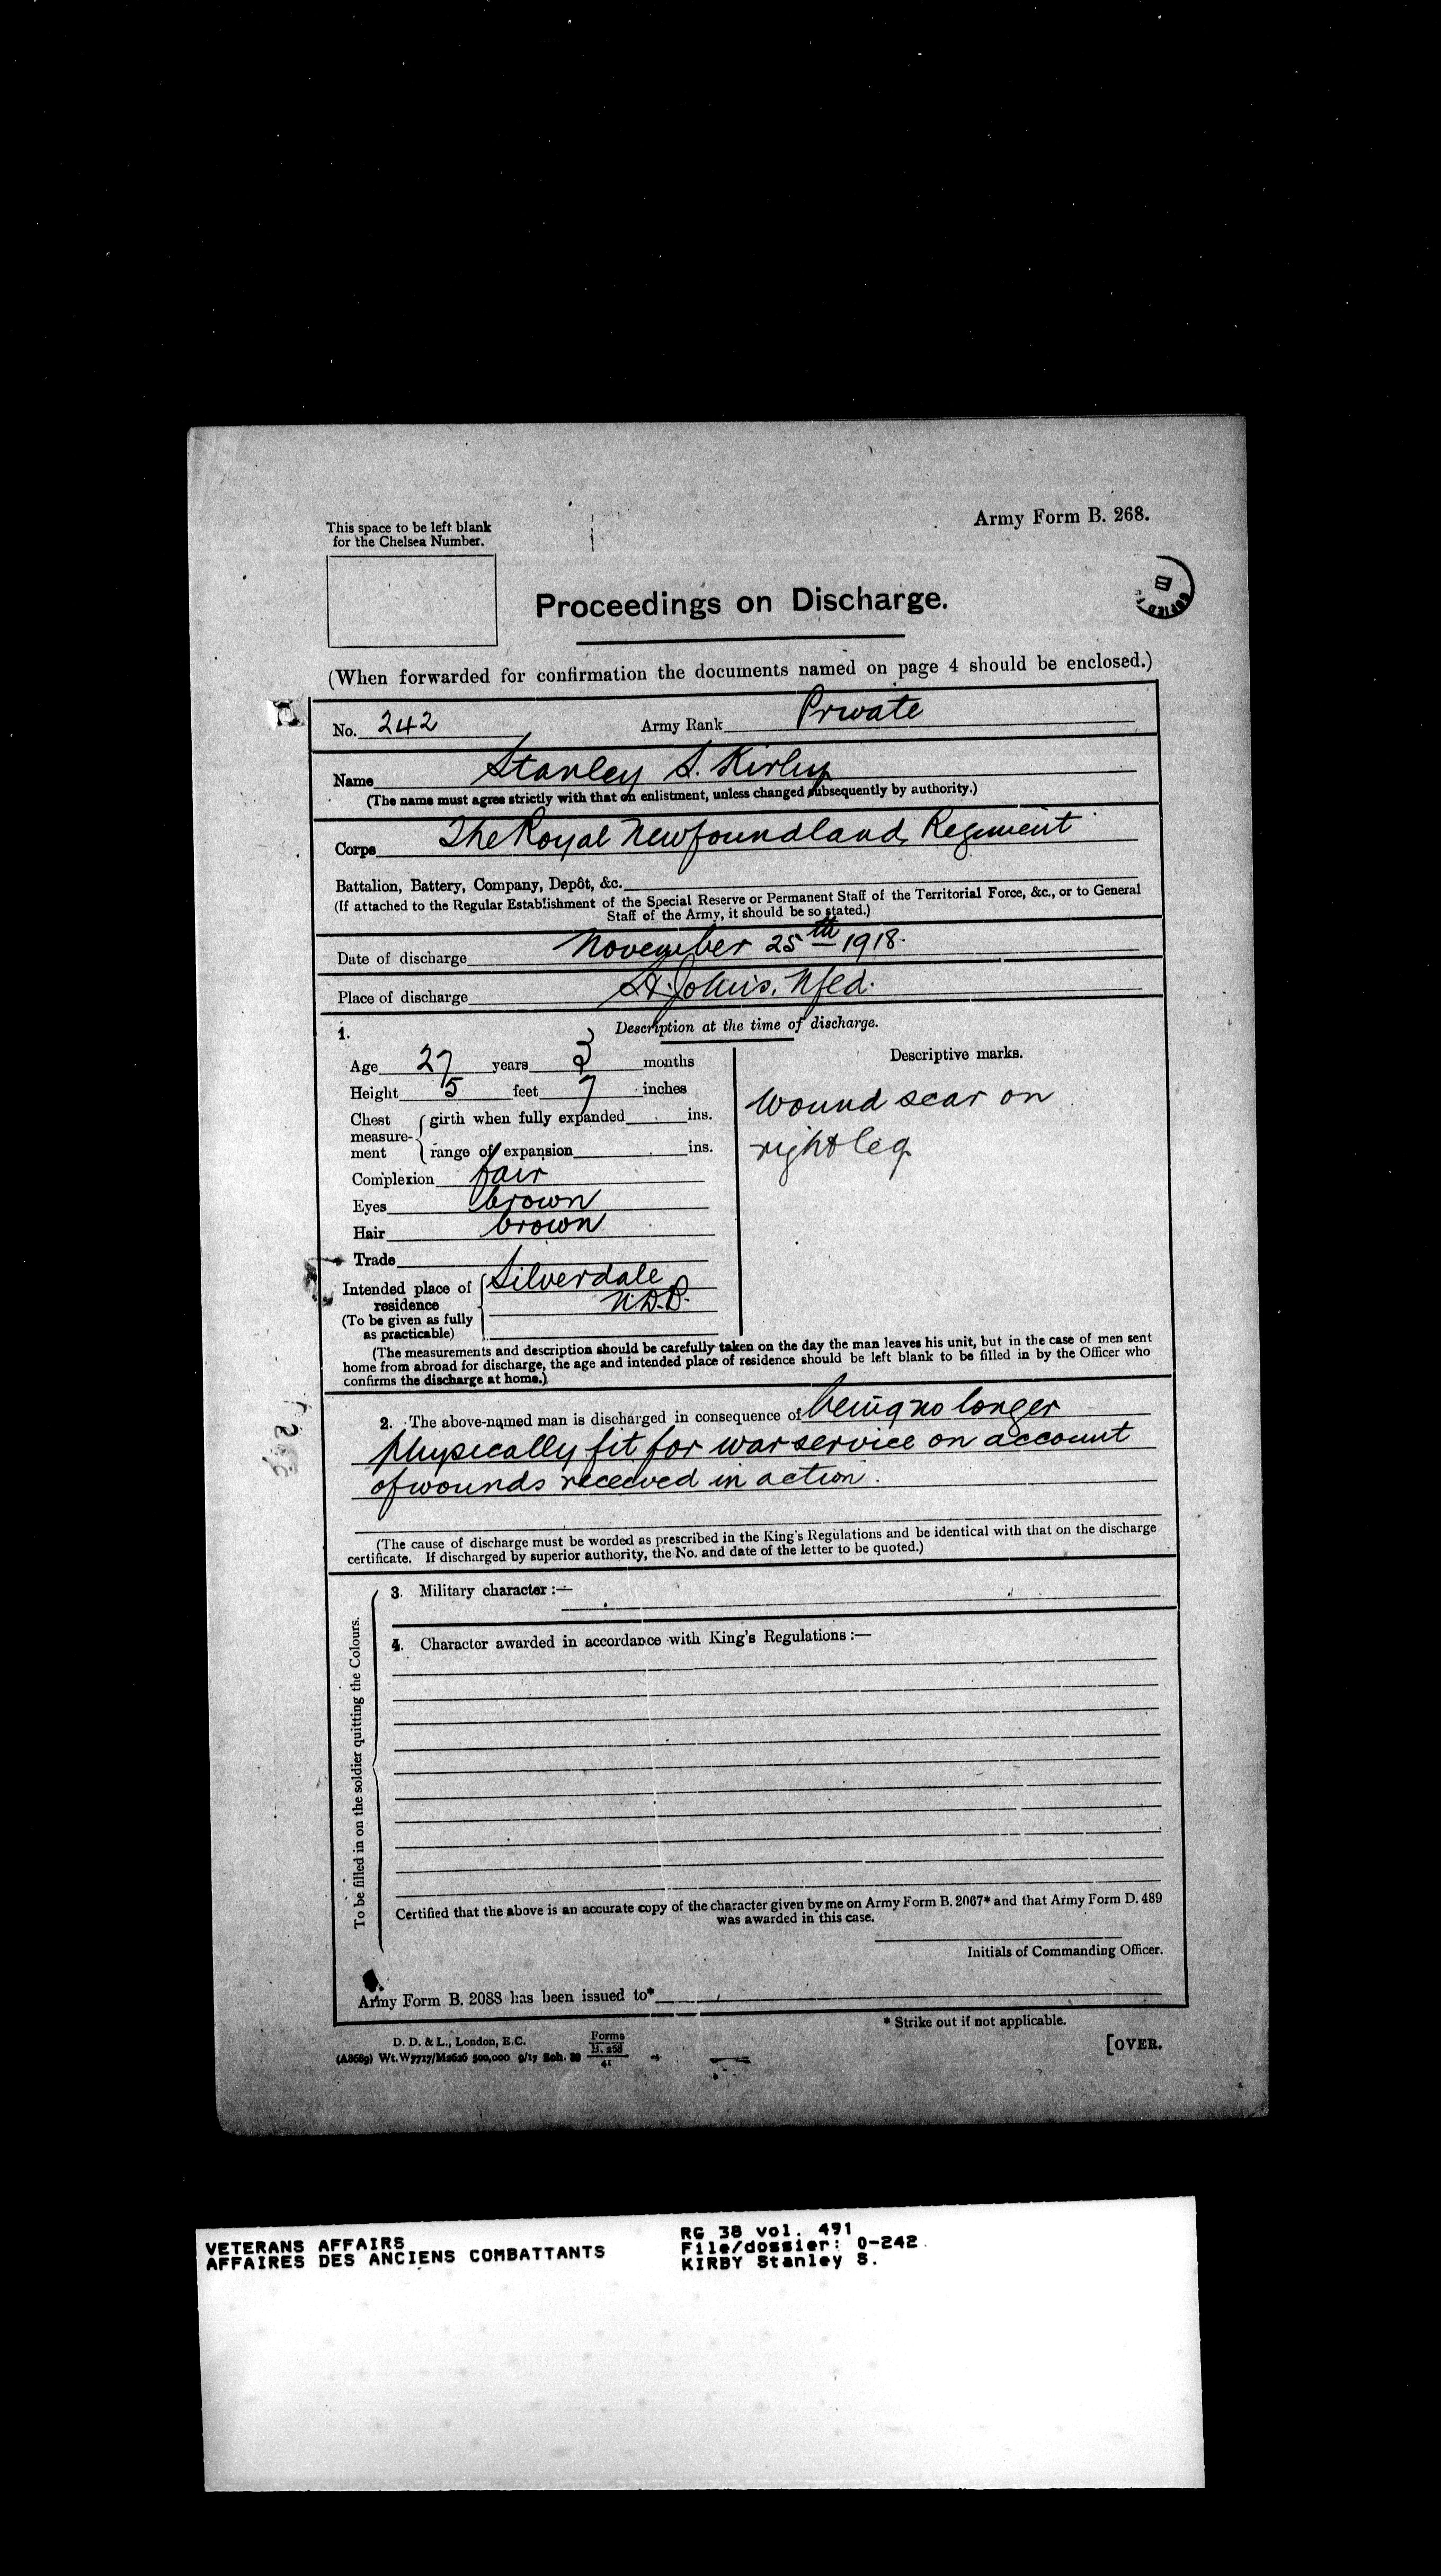 This space to be left blank
for the Chelsea Number.
Army Form B. 268.
COPIED
Proceedings on Discharge.
(When forwarded for confirmation the documents named on page 4 should be enclosed.)
No. 242 Army Rank Private
Name Stanley S. Kirby
(The name must agree strictly with that on enlistment, unless changed subsequently by authority.)
Corps The Royal Newfoundland Regiment
Battalion, Battery, Company, Depôt, &c.
(If attached to the Regular Establishment of the Special Reserve or Permanent Staff of the Territorial Force, &c., or to General
Staff of the Army, it should be so stated.)
Date of discharge November 25th 1918.
Place of discharge St. John's, Nfld.
1. Description at the time of discharge.
Age 27 years 3 months
Height 5 feet 7 inches
Chest measurement girth when fully expanded ins.
range of expansion ins.
Complexion fair
Eyes brown
Hair brown
Trade
Intended place of residence Silverdale
N.D.B.
(To be given as fully
as practicable)
Descriptive marks.
Wound scar on
right leg
(The measurements and description should be carefully taken on the day the man leaves his unit, but in the case of men sent
home from abroad for discharge, the age and intended place of residence should be left blank to be filled in by the Officer who
confirms the discharge at home.)
2. The above-named man is discharged in consequence of being no longer
physically fit for war service on account
of wounds received in action.
(The cause of discharge must be worded as prescribed in the King's Regulations and be identical with that on the discharge
certificate. If discharged by superior authority, the No. and date of the letter to be quoted.)
To be filled in on the soldier quitting the Colours.
3. Military character :—
4. Character awarded in accordance with King's Regulations :—
Certified that the above is an accurate copy of the character given by me on Army Form B. 2067* and that Army Form D. 489
was awarded in this case.
Initials of Commanding Officer.
Army Form B. 2088 has been issued to*
* Strike out if not applicable.
D. D. & L., London, E.C.
(A8689) Wt. W7717/M2626 500,000 9/17 Sch. Forms
B. 268
41
[OVER.
VETERANS AFFAIRS
AFFAIRES DES ANCIENS COMBATTANTS
RG 38 vol. 491
File/dossier: 0-242
KIRBY Stanley S.